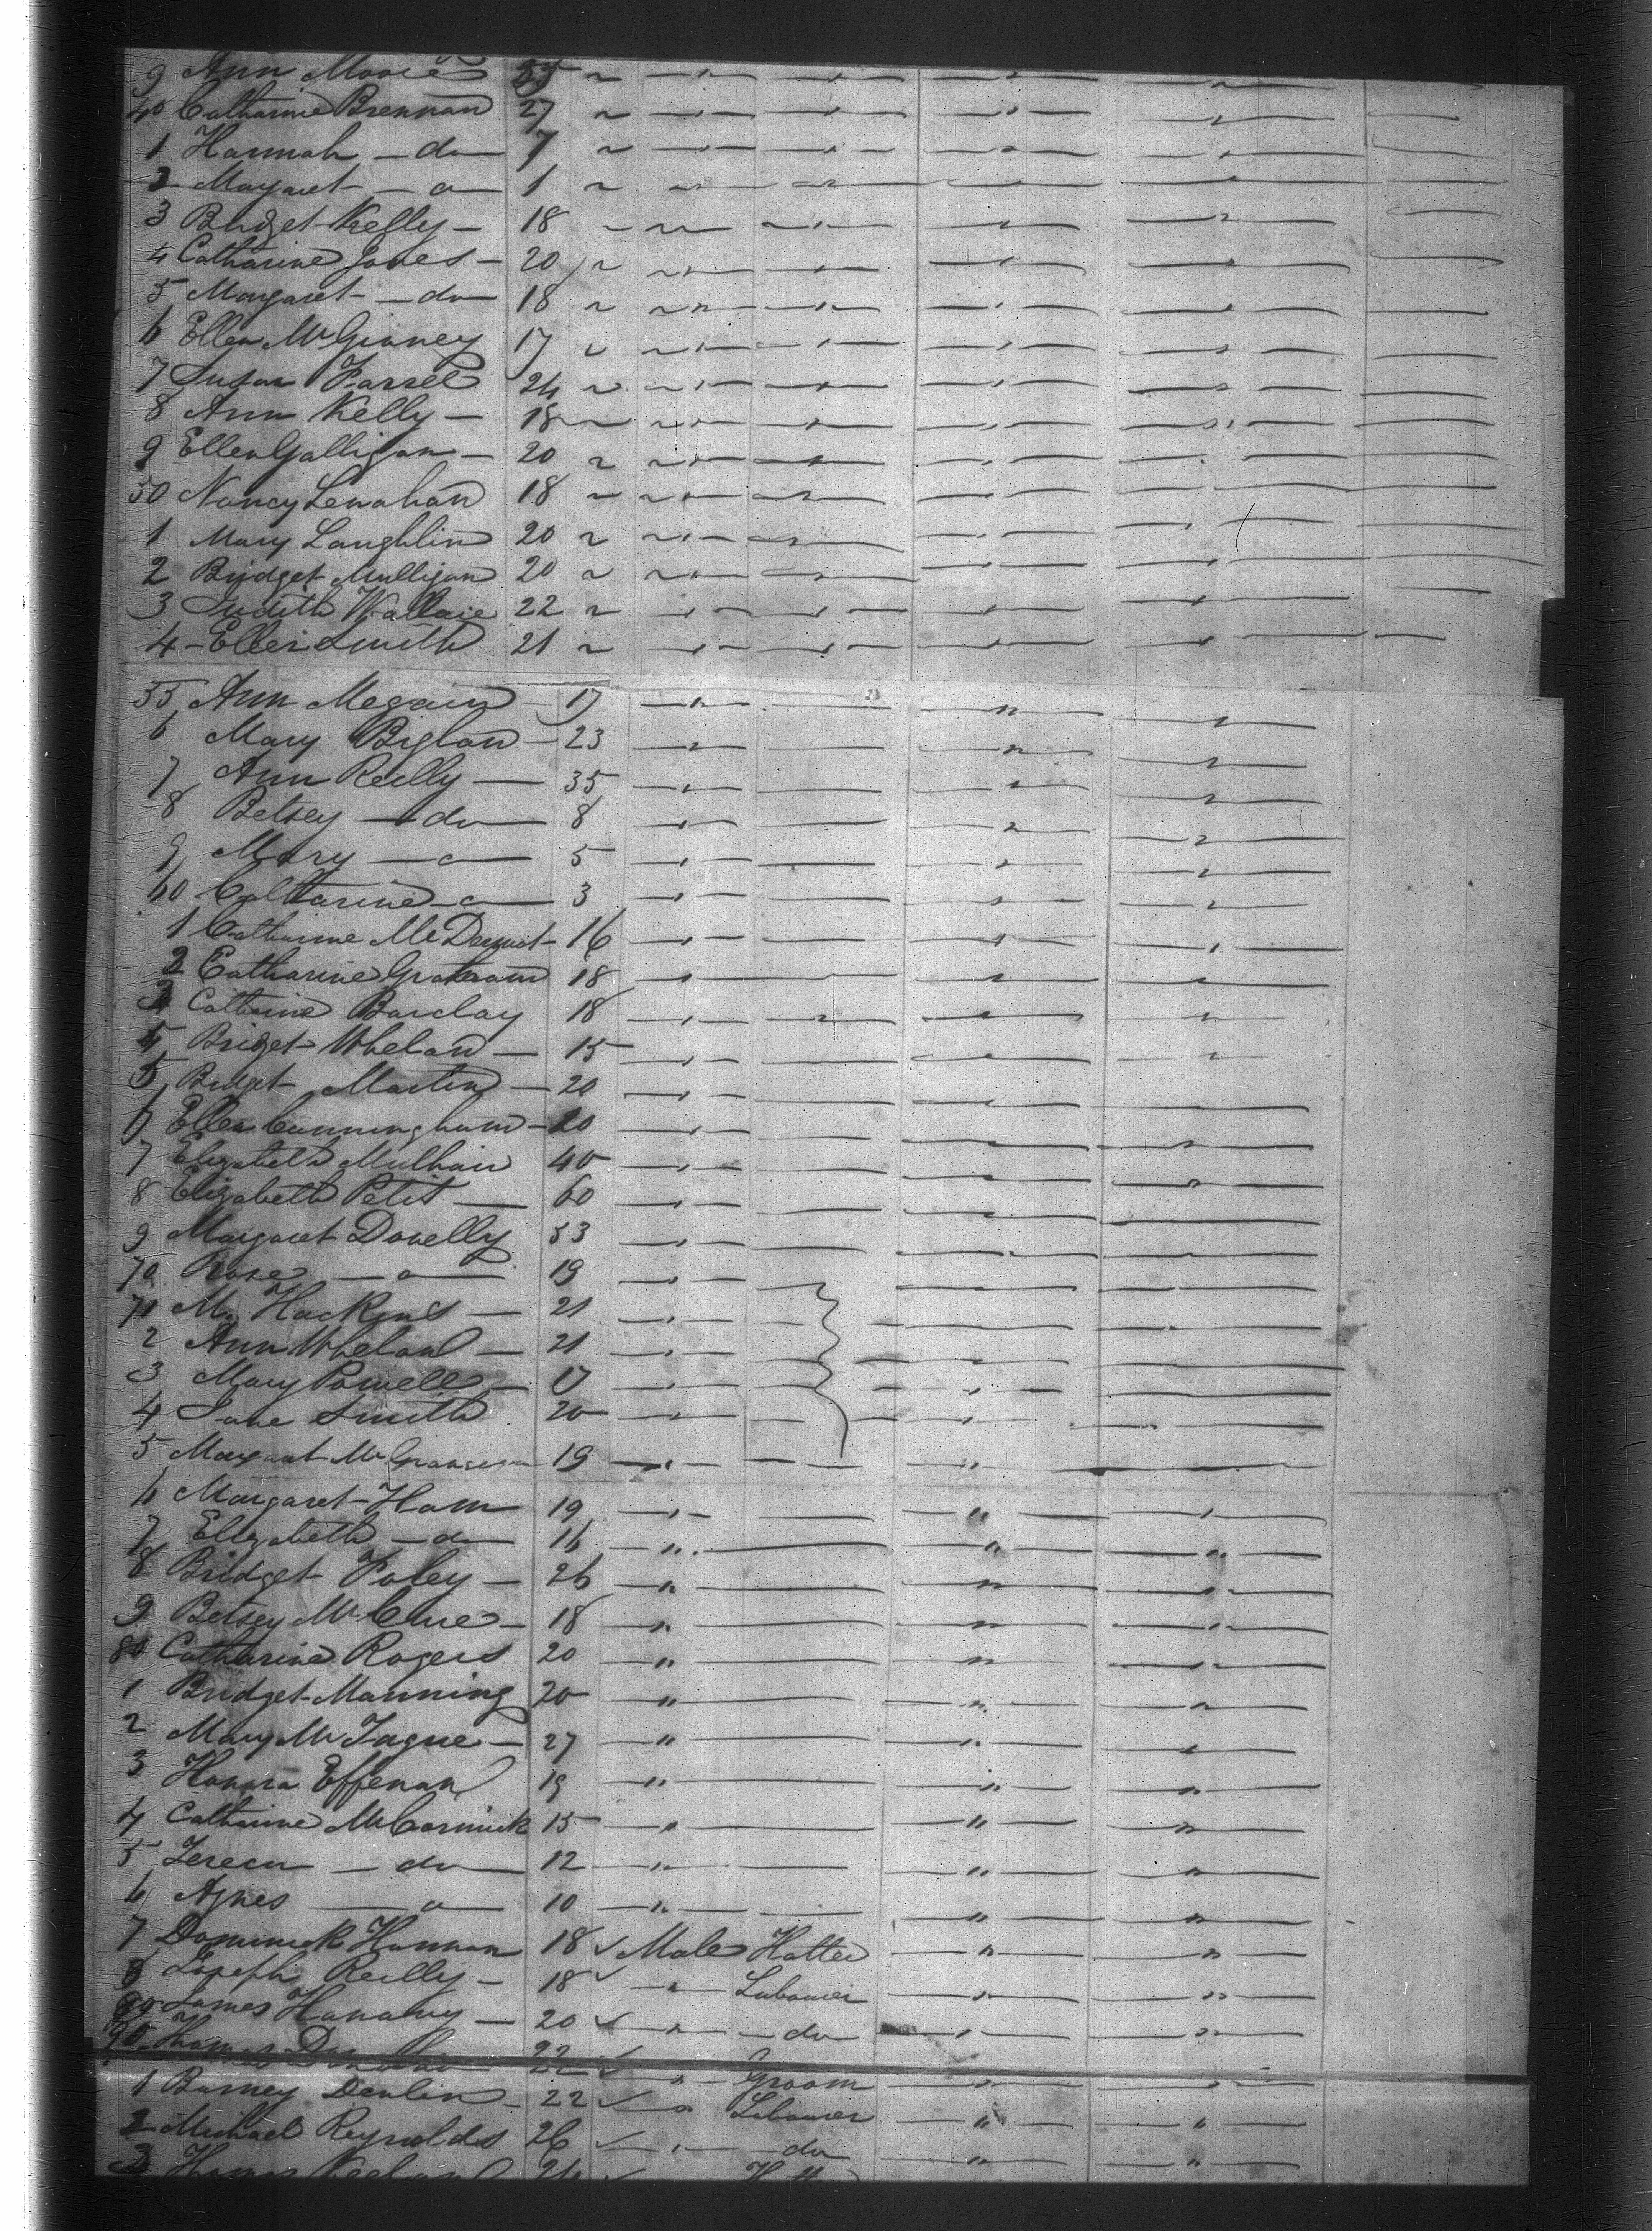 9 Ann Moore
40 Catharine Brennan 27
1 Hannah do 7
2 Margaret " 1
3 Bridget Kelly 18
4 Catharine Jones 20
5 Margaret do 18
6 Ellen McGinney 17
7 Susan Farrel 24
8 Ann Kelly 18
9 Ellen Galligan 20
50 Nancy Lenahan 18
1 Mary Laughlin 20
2 Bridget Mulligan 20
3 Judith Wallace 22
4 Ellen Smith 21
55 Ann Megain 17
6 Mary Biglan 23
7 Ann Reilly 35
8 Betsey do 8
9 Mary " 5
60 Catharine " 3
1 Catharine McDermot 16
2 Catharine Graham 18
3 Catharine Barclay 18
4 Bridget Whelan 15
5 Bridget Martin 20
6 Ellen Cunningham 20
7 Elizabeth Mulhair 40
8 Elizabeth Petit 60
9 Margaret Donelly 53
70 Rose " 19
71 M. Hackens 21
2 Ann Whelan 21
3 Mary Powell 17
4 Jane Smith 20
5 Margaret 19
6 Margaret Ham 19
7 Elizabeth do 16
8 Bridget Foley 26
9 Betsey McClue 18
80 Catharine Rogers 20
1 Bridget Manning 20
2 Mary McTague 27
3 Honora Effenan 19
4 Catharine McCormick 15
5 do 12
6 Agnes " 10
7 Dominick Hannan 18 Male Hatter
8 Joseph Reilly 18 " Labourer
James Hanahy 20 " do
90 Thomas 22 " Groom
1 Barney Devlin 22 " Labourer
2 Michael Reynolds 26 " do
3